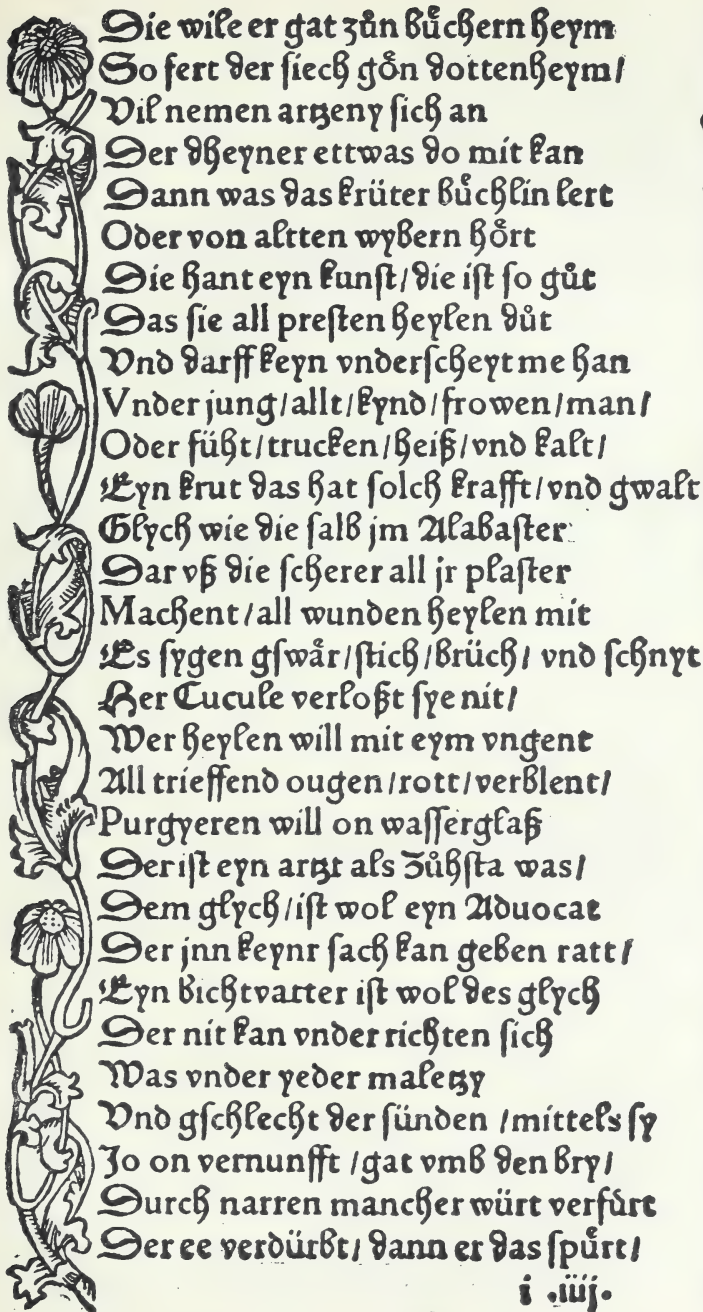 Die wile er gat zůn bůchern heym
So fert der siech gõn dottenheym/
Vil nemen artzeny sich an
Der dheyner ettwas do mit kan
Dann was das krüter bůchlin lert
Oder von altten wybern hõrt
Die hant eyn kunst/die ist so gůt
Das sie all presten heylen důt
Vnd darff keyn vnderscheyt me han
Vnder jung/allt/kynd/frowen/man/
Oder fücht/trucken/heiß/vnd kalt/
Eyn krut das hat solch krafft/vnd gwalt
Glych wie die salb jm Alabaster
Dar vß die scherer all jr plaster
Machent/all wunden heylen mit
Es sygen gswår/stich/brüch/ vnd schnyt
Her Cucule verloßt sye nit/
Wer heylen will mit eym vngent
All trieffend ougen/rott/verblent/
Purgyeren will on wasserglaß
Der ist eyn artzt als Zůhsta was/
Dem glych/ist wol eyn Aduocat
Der jnn keynr sach kan geben ratt/
Eyn bichtvatter ist wol des glych
Der nit kan vnder richten sich
Was vnder yeder maletzy
Vnd gschlecht der sünden /mittels sy
Jo on vernunfft /gat vmb den bry/
Durch narren mancher würt verfůrt
Der ee verdürbt/ dann er das spůrt/
i .iiij.